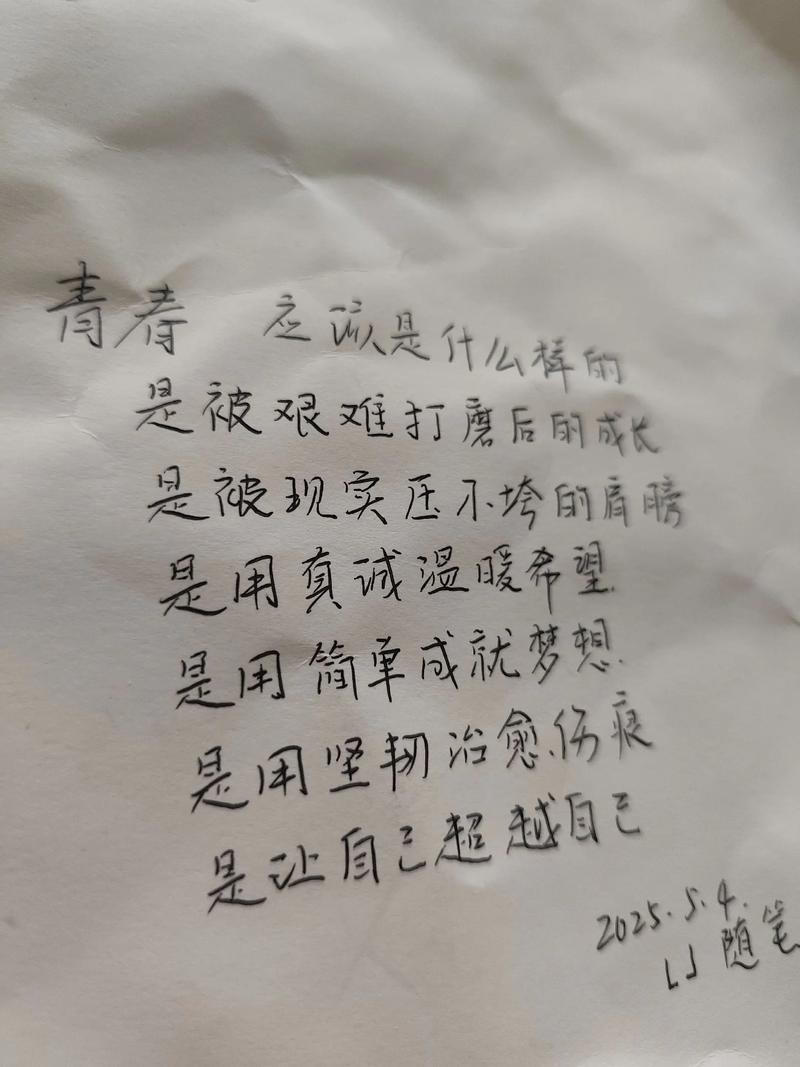 青春 应该是什么样的
是被艰难打磨后的成长
是被现实压不垮的肩膀
是用真诚温暖希望
是用简单成就梦想
是用坚韧治愈伤痕
是让自己超越自己
2025.5.4.
随笔